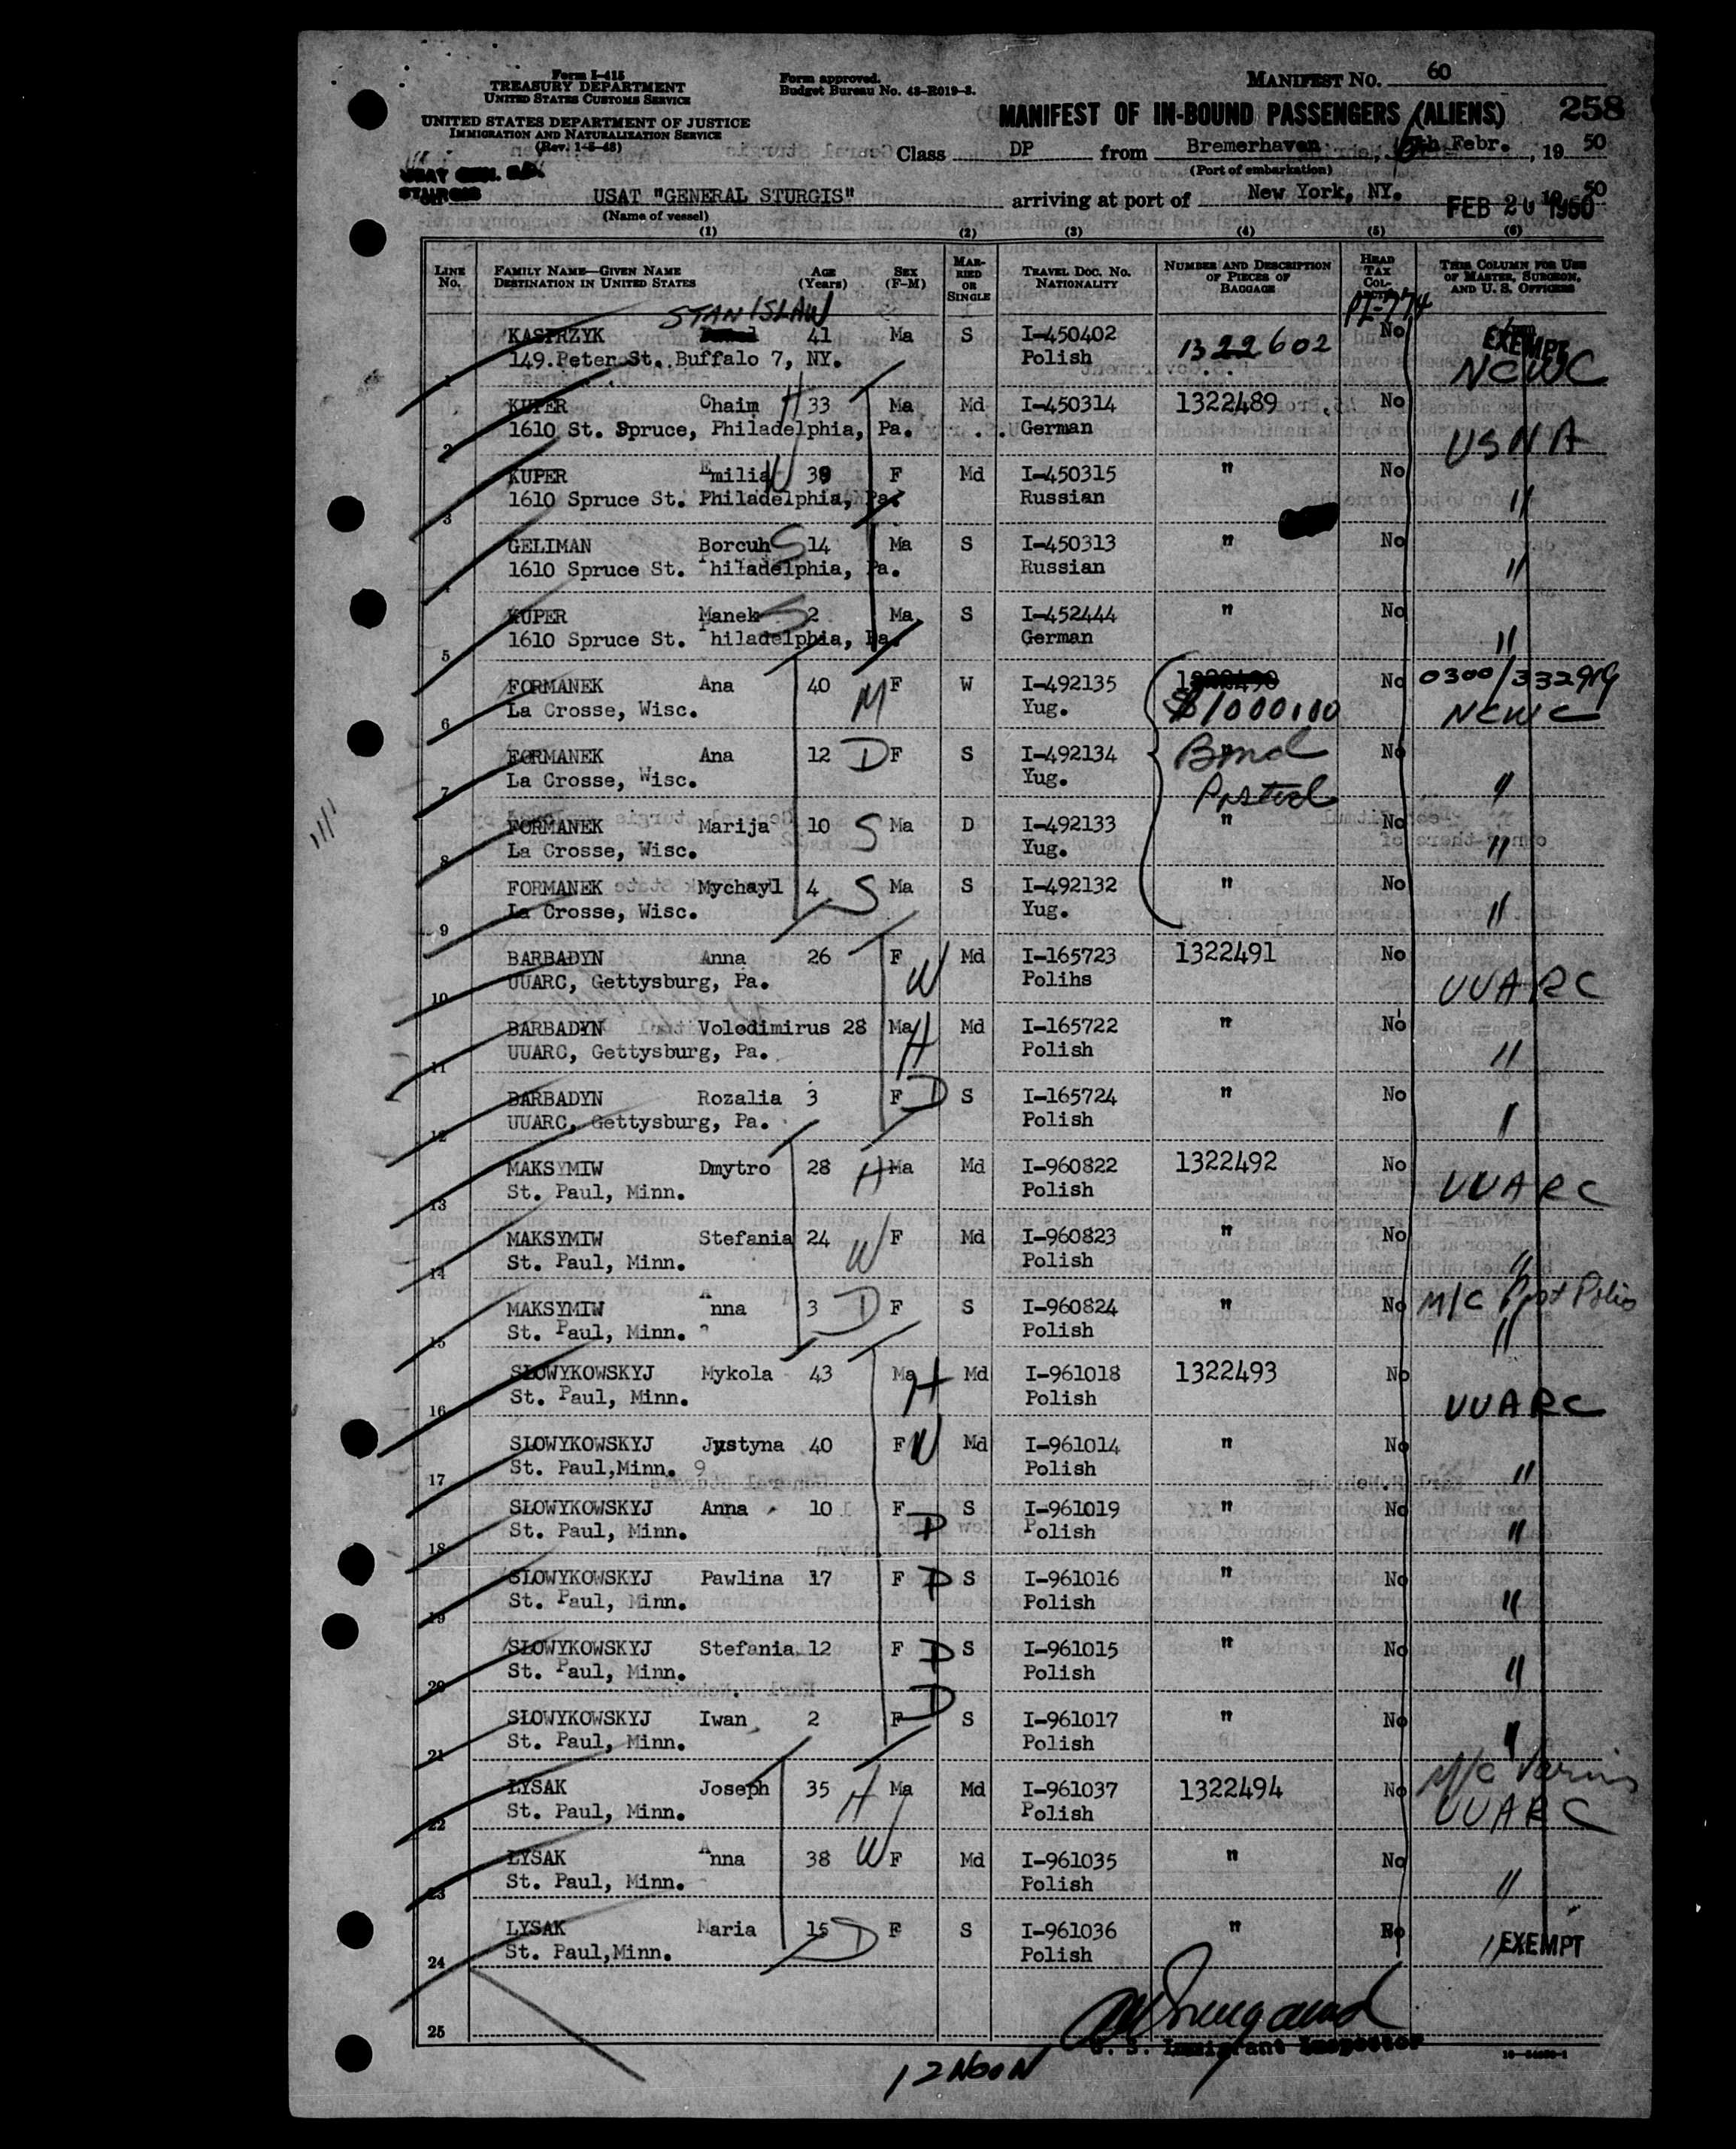 Form I-415
TREASURY DEPARTMENT
UNITED STATES CUSTOMS SERVICE
UNITED STATES DEPARTMENT OF JUSTICE
IMMIGRATION AND NATURALIZATION SERVICE
(Rev. 1-5-48)
Form approved.
Budget Bureau No. 43-R019-3.
MANIFEST NO. 60
MANIFEST OF IN-BOUND PASSENGERS (ALIENS) 258
Class DP from Bremerhaven, th Febr., 19 50
(Port of embarkation)
USAT GEN.
STURGIS
USAT "GENERAL STURGIS" arriving at port of New York, NY. FEB 20 1950 50
(Name of vessel)
(1) (2) (3) (4) (5) (6)
LINE NO.
FAMILY NAME—GIVEN NAME
DESTINATION IN UNITED STATES
AGE (Years)
SEX (F-M)
MARRIED OR SINGLE
TRAVEL DOC. NO.
NATIONALITY
NUMBER AND DESCRIPTION OF PIECES OF BAGGAGE
HEAD TAX COL-
THIS COLUMN FOR USE OF MASTER, SURGEON, AND U. S. OFFICERS
STANISLAW PL-774
KASPRZYK 41 Ma S I-450402 1322602 No EXEMPT
1 149.Peter St. Buffalo 7, NY. Polish NCWC
KUPER Chaim H 33 Ma Md I-450314 1322489 No
2 1610 St. Spruce, Philadelphia, Pa. German USNA
KUPER Emilia W 39 F Md I-450315 " No
3 1610 Spruce St. Philadelphia, Pa. Russian "
GELIMAN Borcuh S 14 Ma S I-450313 " No
4 1610 Spruce St. Philadelphia, Pa. Russian "
KUPER Manek S 2 Ma S I-452444 " No
5 1610 Spruce St. Philadelphia, Pa. German "
FORMANEK Ana 40 M F W I-492135 1322490 No 0300/332919
6 La Crosse, Wisc. Yug. $1000.00 NCWC
FORMANEK Ana 12 D F S I-492134 " Bond No
7 La Crosse, Wisc. Yug. Posted "
FORMANEK Marija 10 S Ma D I-492133 " No
8 La Crosse, Wisc. Yug. "
FORMANEK Mychayl 4 S Ma S I-492132 " No
9 La Crosse, Wisc. Yug. "
BARBADYN Anna 26 F W Md I-165723 1322491 No
10 UUARC, Gettysburg, Pa. Polihs UUARC
BARBADYN Volodimirus 28 Ma H Md I-165722 " No
11 UUARC, Gettysburg, Pa. Polish "
BARBADYN Rozalia 3 F D S I-165724 " No
12 UUARC, Gettysburg, Pa. Polish "
MAKSYMIW Dmytro 28 H Ma Md I-960822 1322492 No
13 St. Paul, Minn. Polish UUARC
MAKSYMIW Stefania 24 W F Md I-960823 " No
14 St. Paul, Minn. Polish "
MAKSYMIW Anna 3 D F S I-960824 " No M/C Post Polio
15 St. Paul, Minn. Polish "
SŁOWYKOWSKYJ Mykola 43 Ma H Md I-961018 1322493 No
16 St. Paul, Minn. Polish UUARC
SLOWYKOWSKYJ Justyna 40 F W Md I-961014 " No
17 St. Paul,Minn. 9 Polish "
SŁOWYKOWSKYJ Anna 10 F D S I-961019 " No
18 St. Paul, Minn. Polish "
SŁOWYKOWSKYJ Pawlina 17 F D S I-961016 " No
19 St. Paul, Minn. Polish "
SŁOWYKOWSKYJ Stefania 12 F D S I-961015 " No
20 St. Paul, Minn. Polish "
SŁOWYKOWSKYJ Iwan 2 F D S I-961017 " No
21 St. Paul, Minn. Polish "
ŁYSAK Joseph 35 H Ma Md I-961037 1322494 No M/C
22 St. Paul, Minn. Polish UUARC
ŁYSAK Anna 38 W F Md I-961035 " No
23 St. Paul, Minn. Polish "
LYSAK Maria 15 D F S I-961036 " No
24 St. Paul,Minn. Polish " EXEMPT
25
U. S. Immigrant Inspector
12 NOON